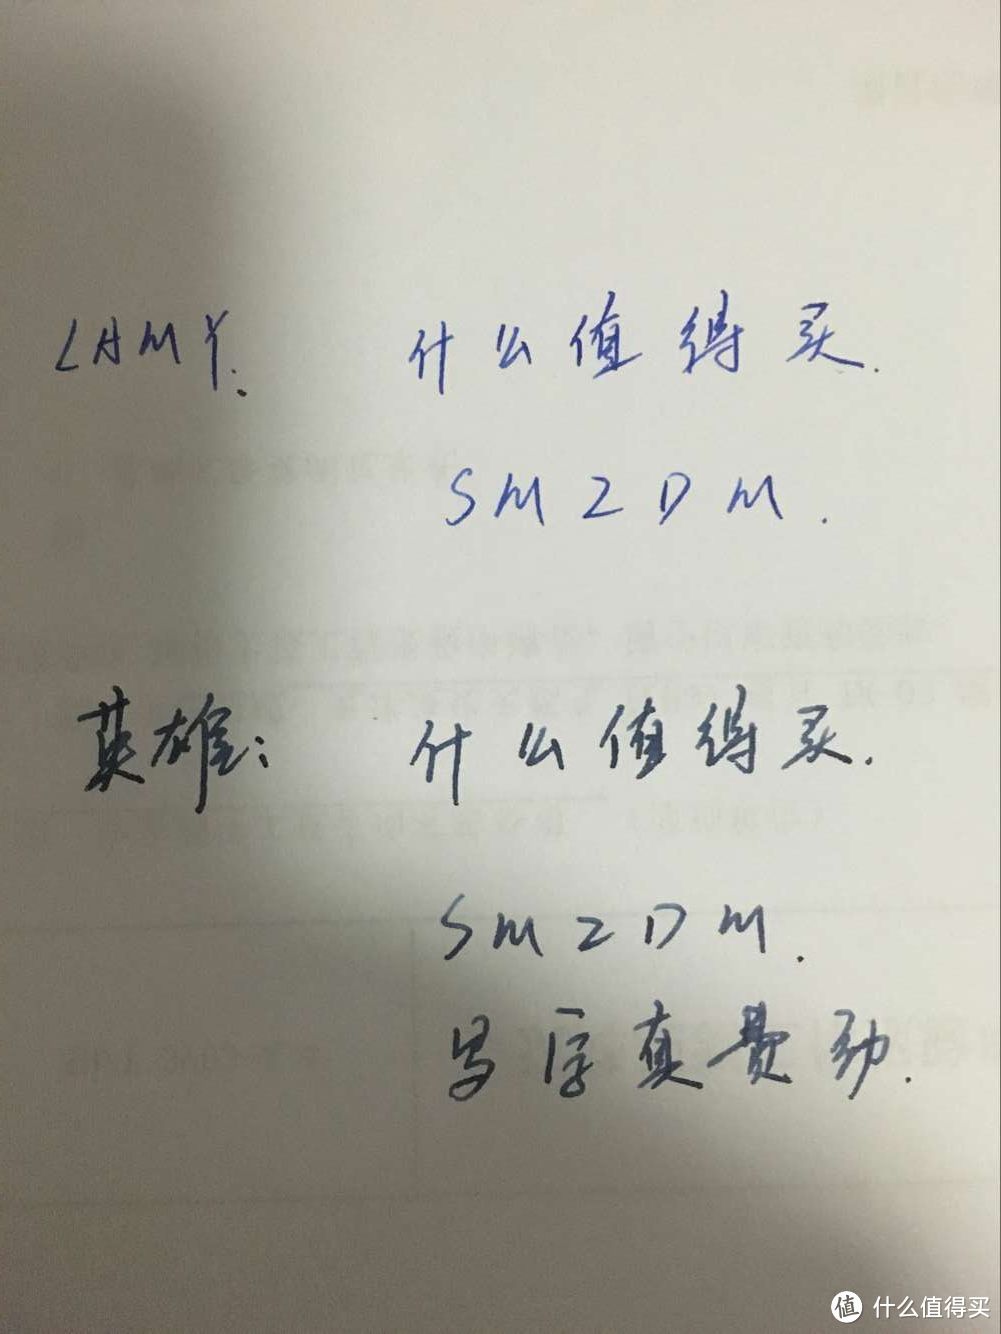 LAMY. 什么值得买.
SMZDM.
英雄: 什么值得买.
SMZDM.
写字真费劲.
值 什么值得买